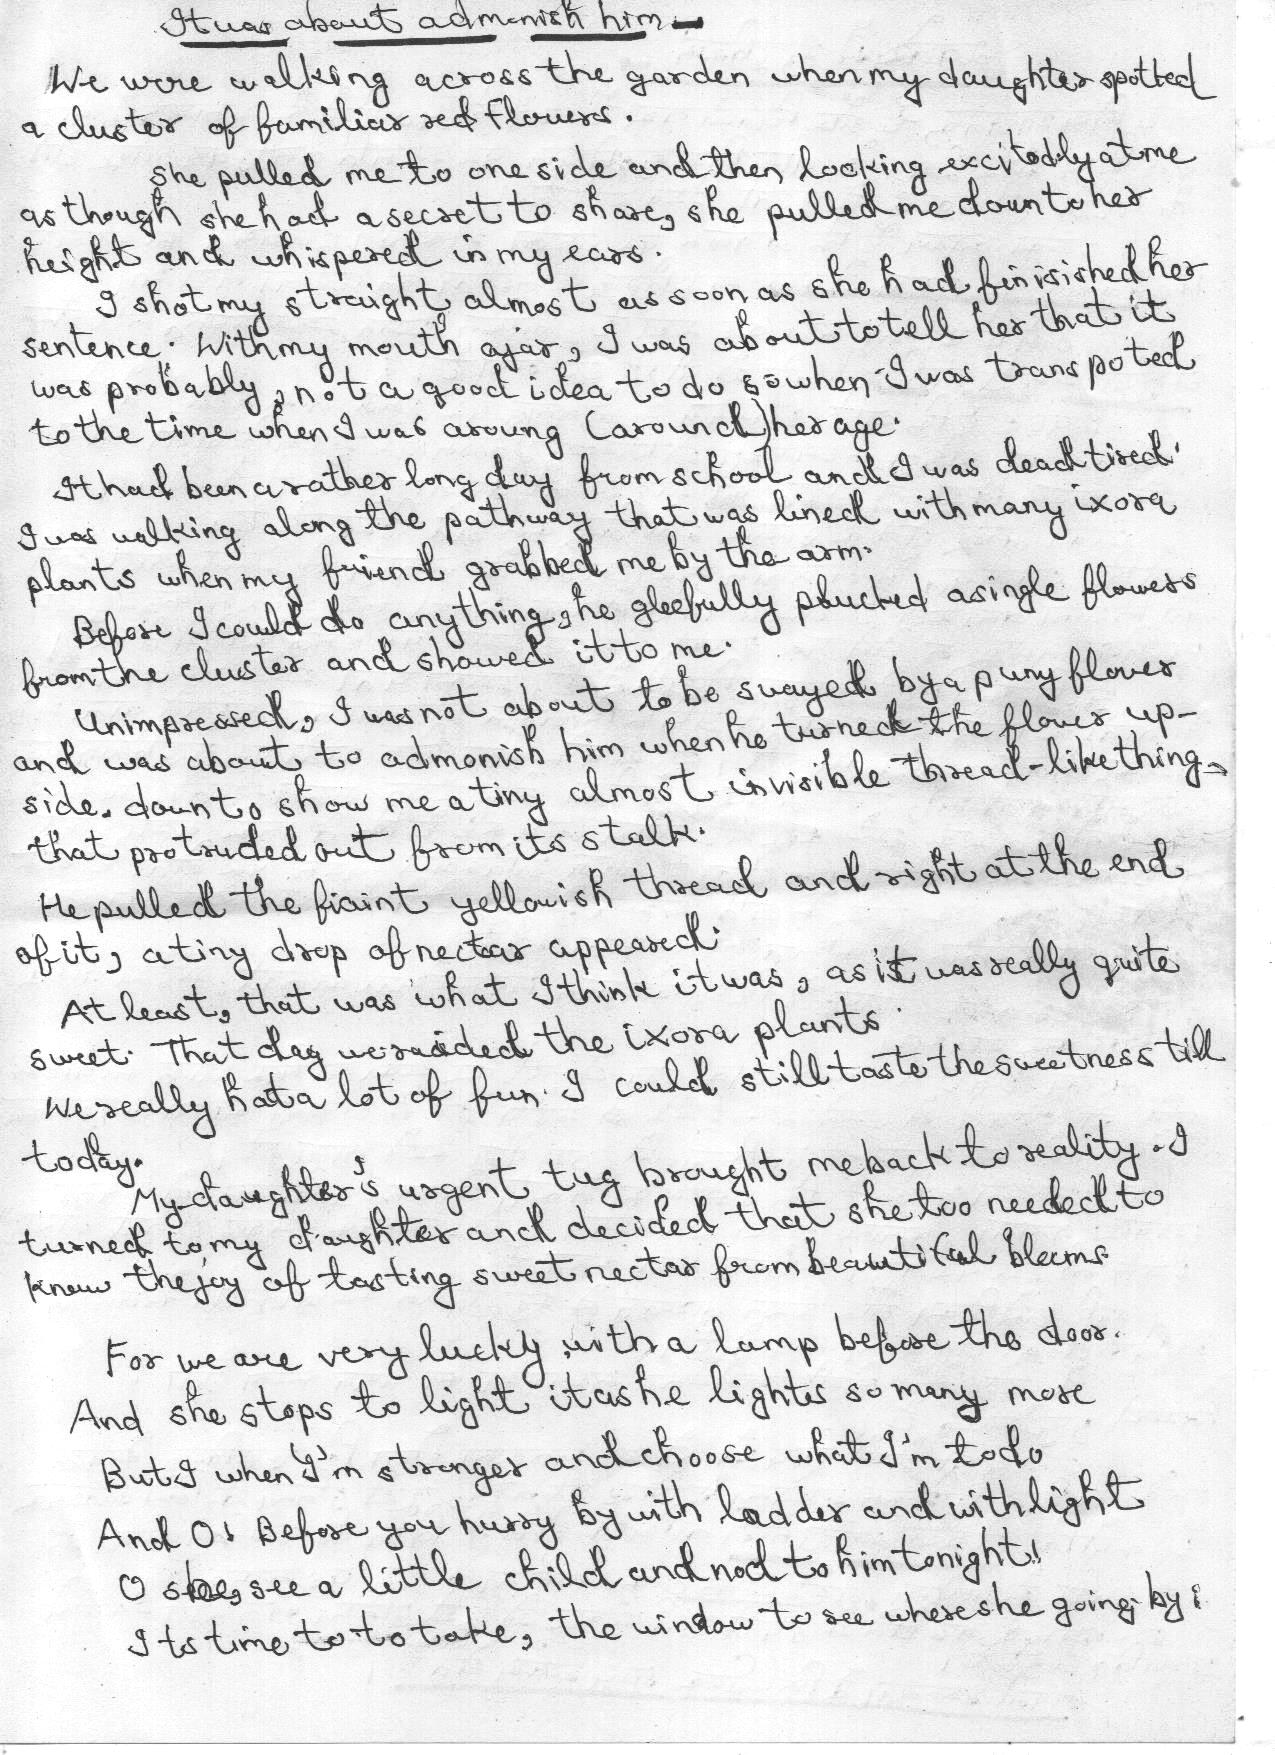 It was about admonish him
We were walking across the garden when my daughter spotted
a cluster of familiar red flowers.
she pulled me to one side and then looking excitedly at me
as though she had a secret to share, she pulled me down to her
height and whispered in my ears.
I shot my straight almost as soon as she had finisished her
sentence. With my mouth ajar, I was about to tell her that it
was probably, not a good idea to do so when I was transpoted
to the time when I was aroung (around) her age.
It had been a rather long day from school and I was dead tired.
I was walking along the pathway that was lined with many ixora
plants when my friend grabbed me by the arm.
Before I could do anything, he gleefully plucked a single flowers
from the cluster and showed it to me.
Unimpressed, I was not about to be swayed by a puny flower
and was about to admonish him when he turned the flower up-
side. down to show me a tiny almost invisible thread-like thing
that protruded out from its stalk.
He pulled the fiaint yellowish thread and right at the end
of it, a tiny drop of nectar appeared.
At least, that was what I think it was, as it was really quite
sweet. That day we raided the ixora plants.
We really hat a lot of fun. I could still taste the sweetness till
today.
My daughter's urgent tug brought me back to reality. I
turned to my daughter and decided that she too needed to
know the joy of tasting sweet nectar from beautiful blooms.
For we are very lucky, with a lamp before the door.
And she stops to light it as he lights so many more
But I when I'm stronger and choose what I'm to do
And O! Before you hurry by with ladder and with light
O see a little child and nod to him tonight!
Its time to to take, the window to see where she going by;